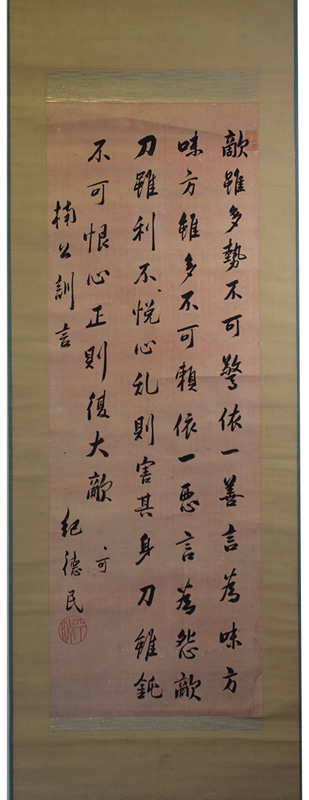 敵雖多勢不可驚依一善言為味方
味方雖多不可頼依一悪言為怨敵
刀雖利不悦心乱則害其身刀雖鈍
不可恨心正則復大敵 可
楠公訓言 紀徳民